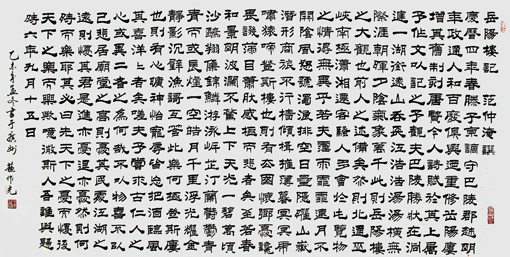 岳陽樓記 范仲淹撰
慶曆四年春滕子京謫守巴陵郡越明
年政通人和百廢俱興迺重修岳陽樓
增其舊制刻唐賢今人詩賦於其上屬
予作文以記之予觀夫巴陵勝狀在洞
庭一湖銜遠山吞長江浩浩湯湯橫無
際涯朝暉夕陰氣象萬千此則岳陽樓
之大觀也前人之述備矣然則北通巫
峽南極瀟湘遷客騷人多會於此覽物
之情得無異乎若夫霪雨霏霏連月不
開陰風怒號濁浪排空日星隱耀山嶽
潛形商旅不行檣傾楫摧薄暮冥冥虎
嘯猿啼登斯樓也則有去國懷鄉憂讒
畏譏滿目蕭然感極而悲者矣至若春
和景明波瀾不驚上下天光一碧萬頃
沙鷗翔集錦鱗游泳岸芷汀蘭郁郁青
青而或長煙一空皓月千里浮光耀金
靜影沉璧漁歌互答此樂何極登斯樓
也則有心曠神怡寵辱皆忘把酒臨風
其喜洋洋者矣嗟夫予嘗求古仁人之
心或異二者之為何哉不以物喜不以
己悲居廟堂之高則憂其民處江湖之
遠則憂其君是進亦憂退亦憂然則何
時而樂耶其必曰先天下之憂而憂後
天下之樂而樂歟噫微斯人吾誰與歸
時六年九月十五日
乙未年孟冬書于